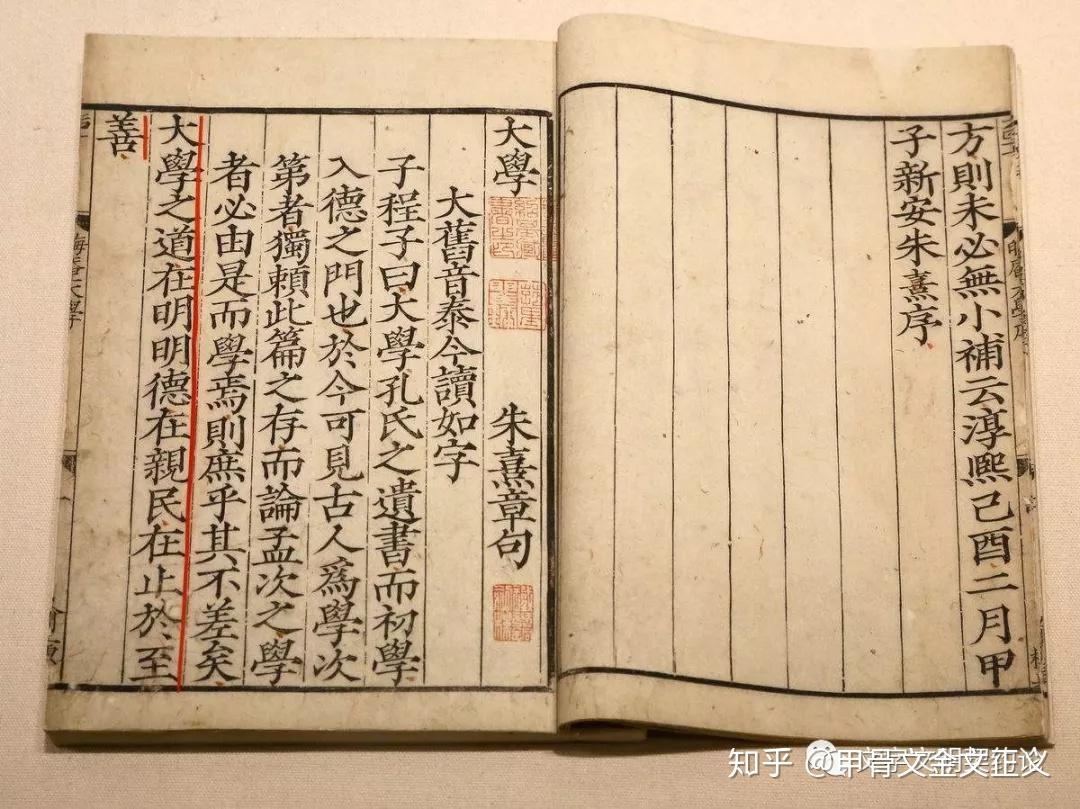 方則未必無小補云淳熙己酉二月甲
子新安朱熹序
大學
朱熹章句
大舊音泰今讀如字
子程子曰大學孔氏之遺書而初學
入德之門也於今可見古人爲學次
第者獨頼此篇之存而論孟次之學
者必由是而學焉則庶乎其不差矣
大學之道在明明德在親民在止於至
善
知乎 @甲骨文金文正义